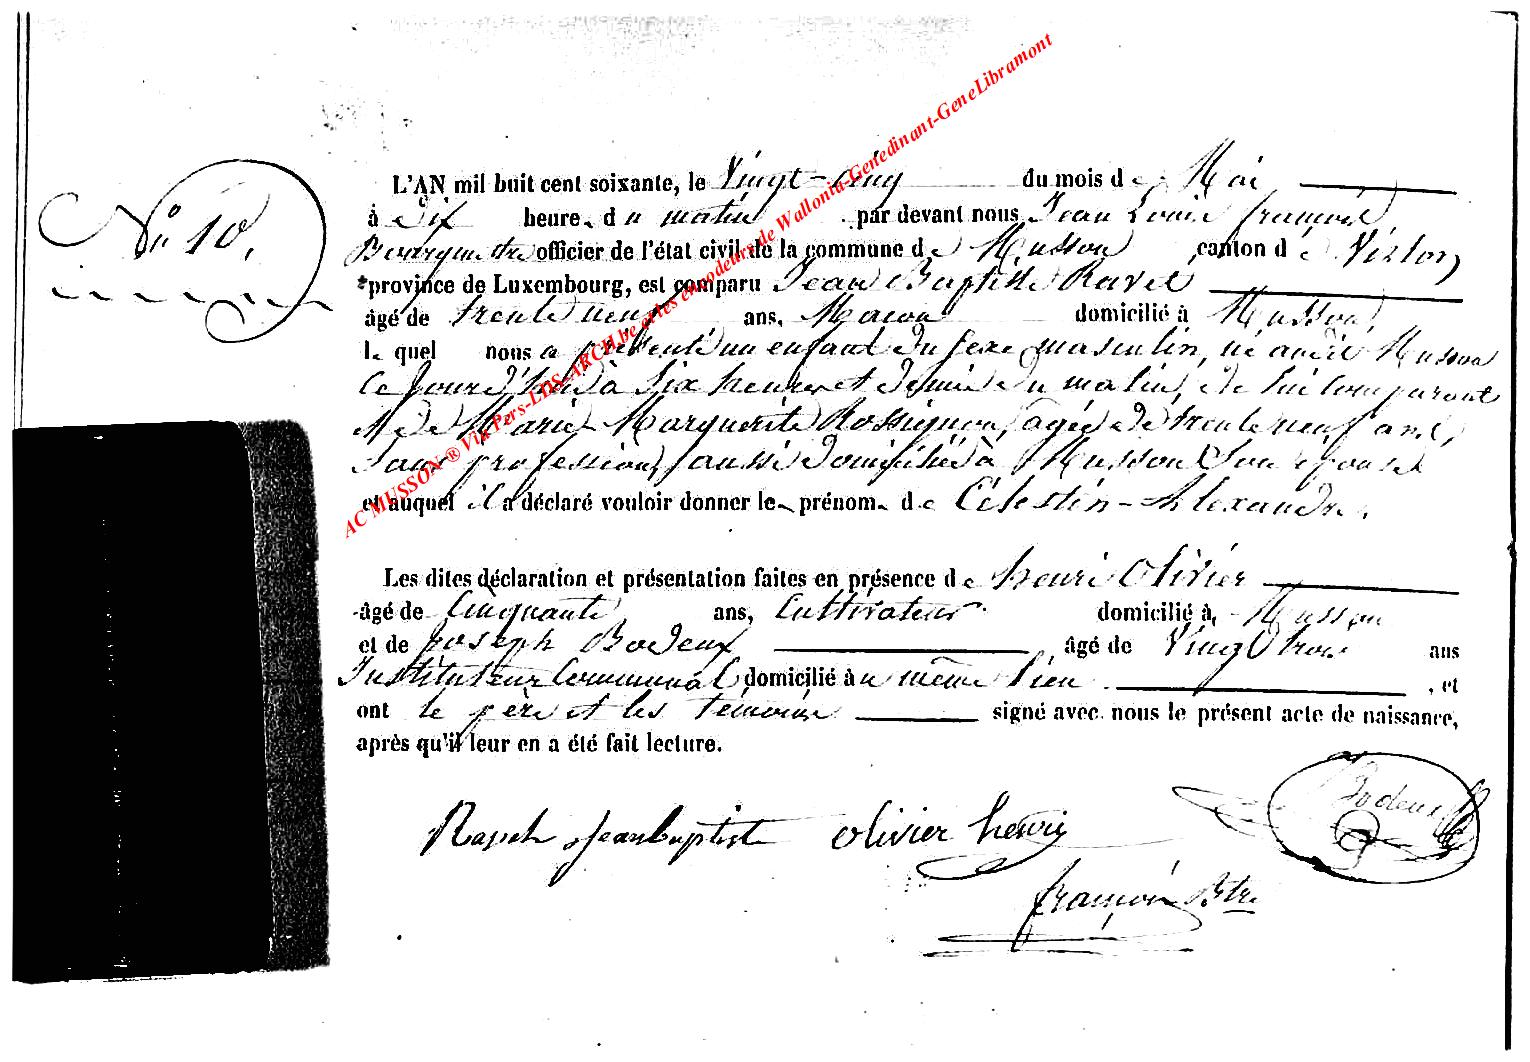 N° 10.
L'AN mil huit cent soixante, le Vingt-cinq du mois de Mai
à dix heure du matin par devant nous Jean Louis françois
Bourgmestre officier de l'état civil de la commune de Musson canton de Virton
province de Luxembourg, est comparu Jean Baptiste Ravet
âgé de trente neuf ans, Macon domicilié à Musson,
le quel nous a présenté un enfant du sexe masculin, né audit Musson
ce jourd'hui à six heures et demie du matin, de lui comparant
et de Marie Marguerite Rossignon, agée de trente neuf ans,
sans profession, aussi domiciliée à Musson, son épouse
et auquel il a déclaré vouloir donner le prénom de Célestin-Alexandre.
Les dites déclaration et présentation faites en présence de henri Olivier
âgé de Cinquante ans, Cultivateur domicilié à Musson
et de joseph Bodeux âgé de Vingt trois ans
Instituteur Communal domicilié au même lieu , et
ont le père et les témoins signé avec nous le présent acte de naissance,
après qu'il leur en a été fait lecture.
jean baptist olivier henri Bodeux
françois Btre
AC MUSSON ® Via Pers-LDS-ARCH.be et les encodeurs de Wallonia-Genedinant-GeneLibramont